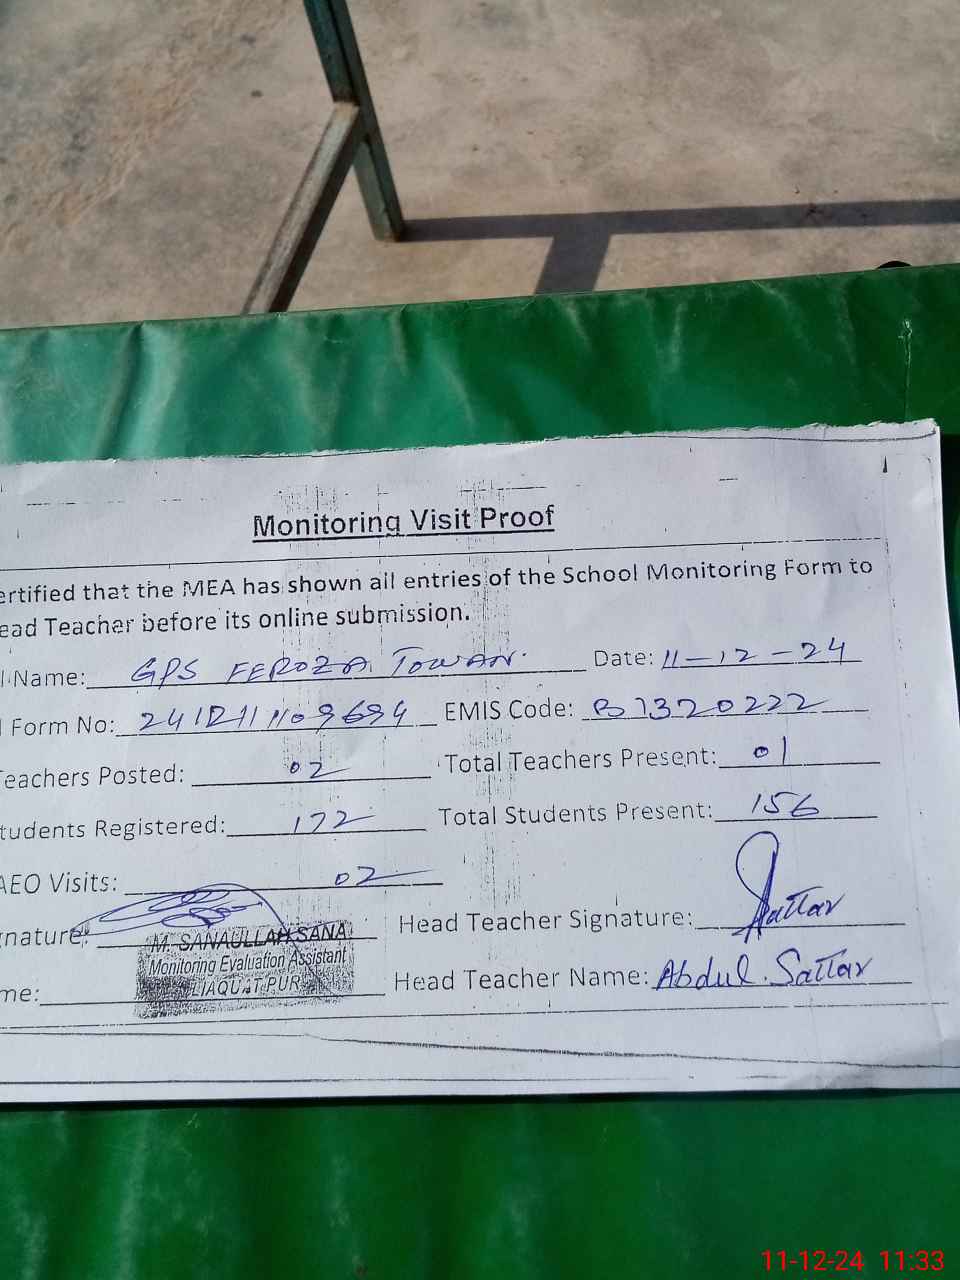 Monitoring Visit Proof
ertified that the MEA has shown all entries of the School Monitoring Form to
ead Teacher before its online submission.
l Name: GPS FEROZA TOWAN. Date: 11-12-24
l Form No: EMIS Code:
Teachers Posted: 02 Total Teachers Present: 01
tudents Registered: 172 Total Students Present: 156
AEO Visits: 02
gnature: Head Teacher Signature: Sattar
M. SANAULLAH SANA
Monitoring Evaluation Assistant
LIAQUAT PUR
me: Head Teacher Name: Abdul. Sattar
11-12-24 11:33